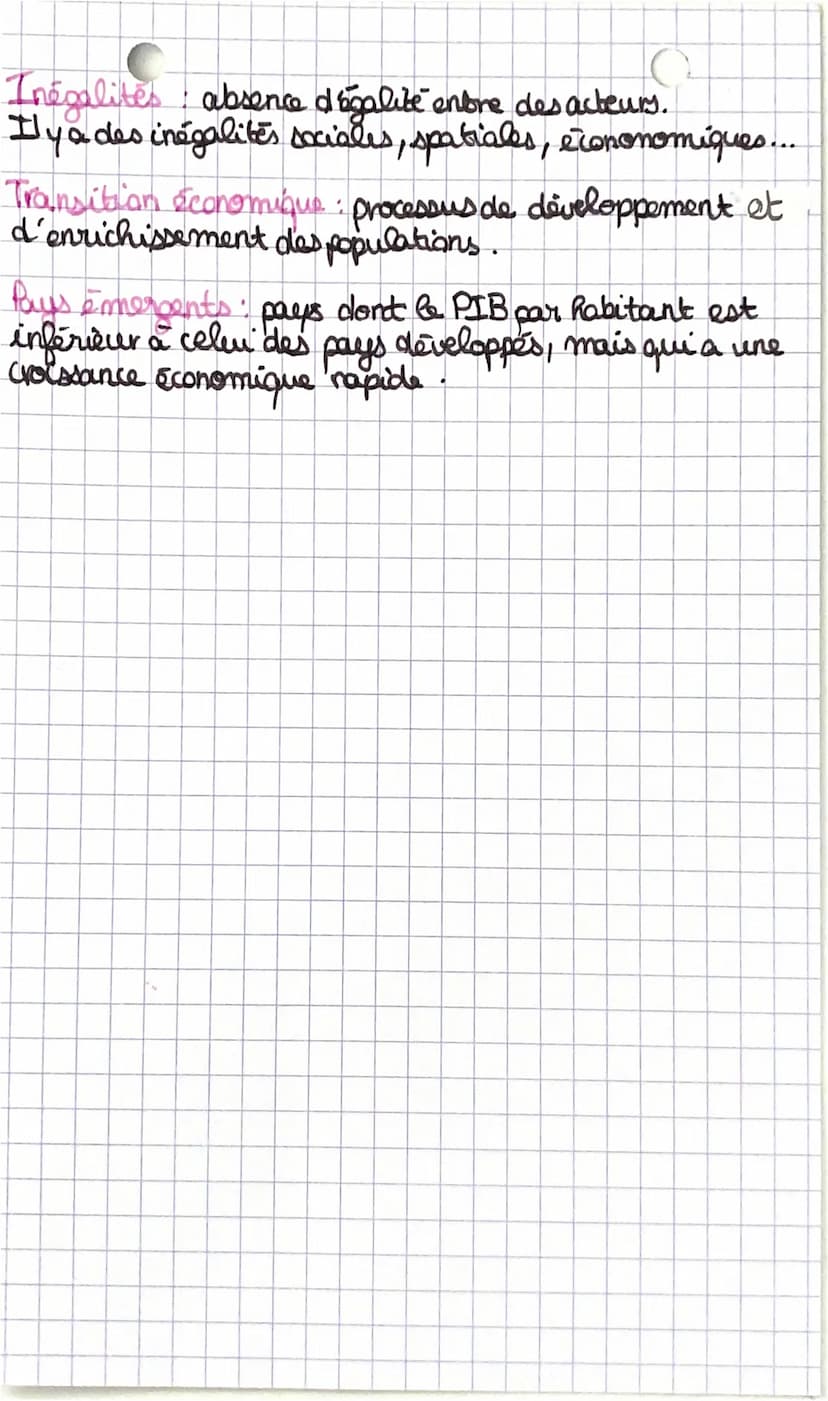 Inégalités : absence d'égalité entre des acteurs.
Il y a des inégalités sociales, spatiales, écononomiques...
Transition économique : processus de développement et
d'enrichissement des populations.
Pays émergents : pays dont le PIB par habitant est
inférieur à celui des pays développés, mais qui a une
croissance économique rapide.